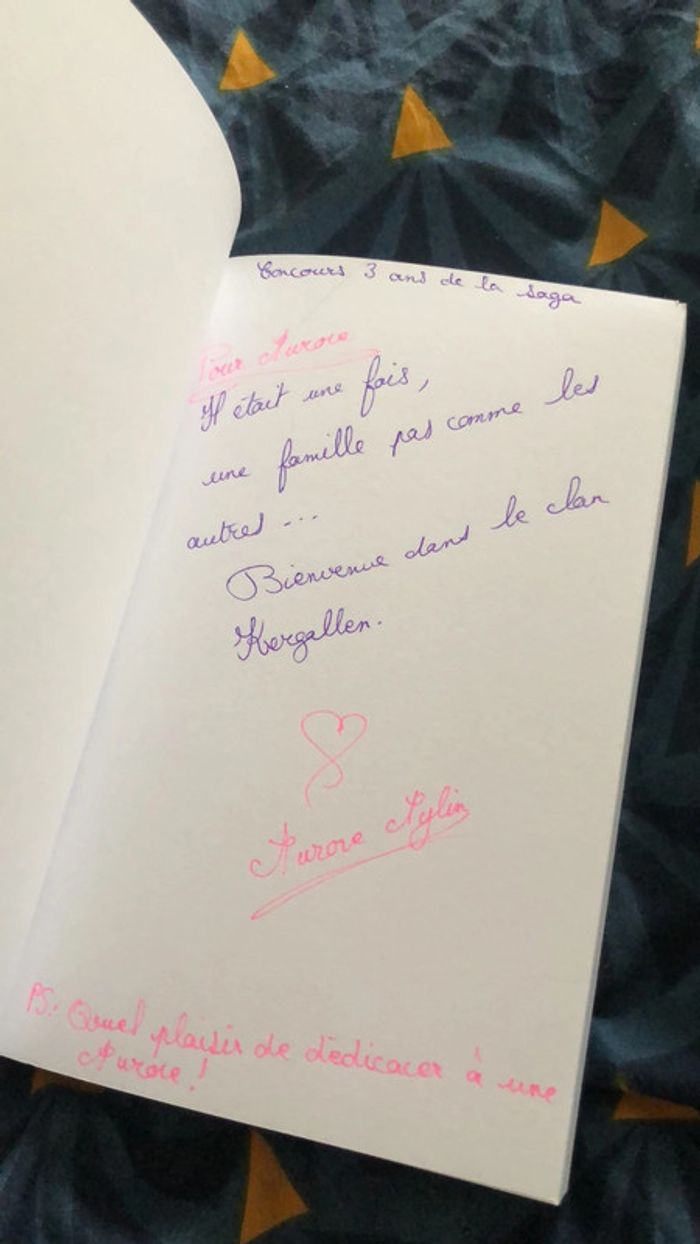 Concours 3 ans de la saga
Pour Aurore
Il était une fois,
une famille pas comme les
autres ...
Bienvenue dans le clan
Kergallen.
Aurore Aylin
PS: Quel plaisir de dédicacer à une
Aurore !